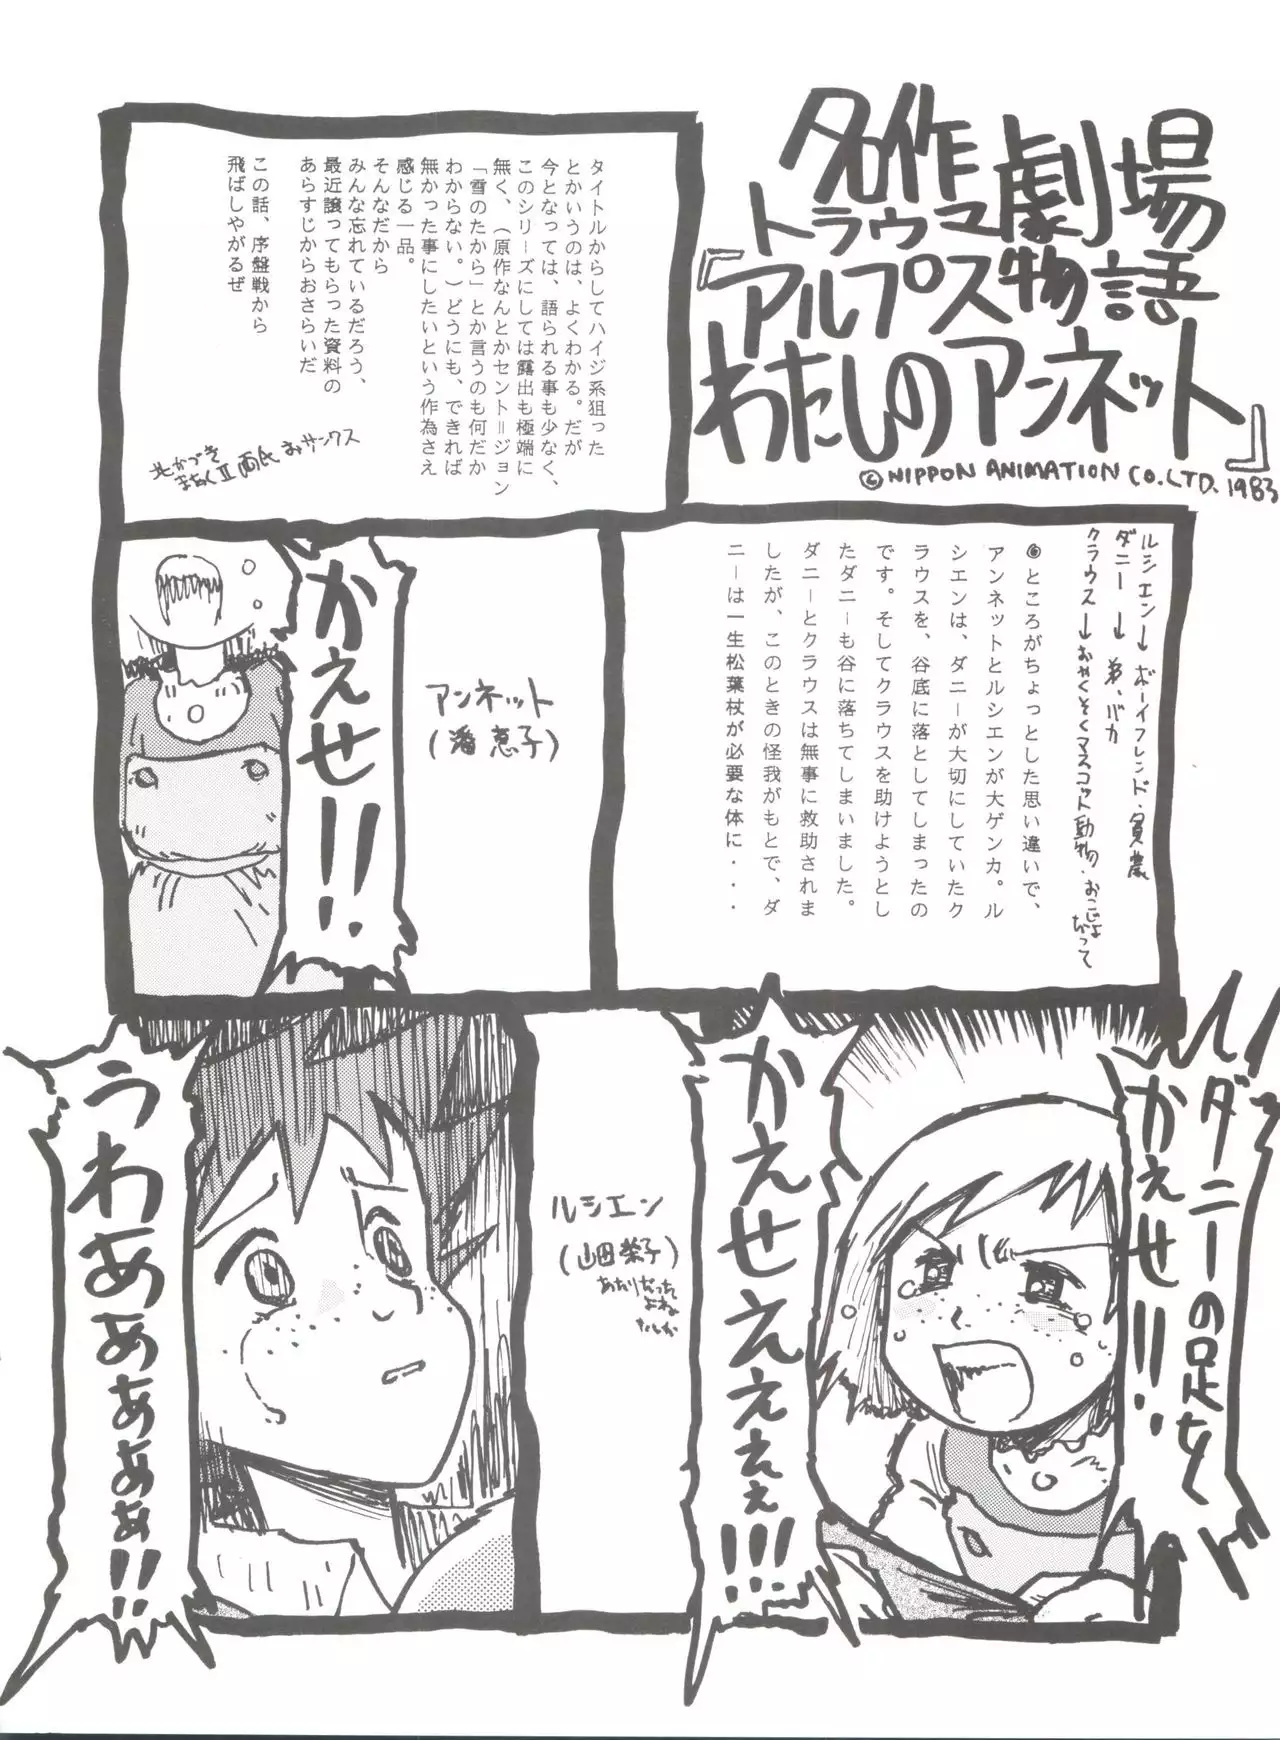 名作
トラウマ劇場
『アルプス物語
わたしのアンネット』
©NIPPON ANIMATION CO.LTD. 1983
タイトルからしてハイジ系狙った
とかいうのは、よくわかる。だが
今となっては、語られる事も少なく、
このシリーズにしては露出も極端に
無く、（原作なんとかセント＝ジョン
「雪のたから」とか言うのも何だか
わからない。）どうにも、できれば
無かった事にしたいという作為さえ
感じる一品。
そんなだから
みんな忘れているだろう、
最近譲ってもらった資料の
あらすじからおさらいだ
この話、序盤戦から
飛ばしやがるぜ
北かづき
まちくⅡ 両氏 みサンクス
ルシエン→ボーイフレンド・貧農
ダニー→弟、バカ
クラウス→おやくそくマスコット動物・おこじょ
だって
●ところがちょっとした思い違いで、
アンネットとルシエンが大ゲンカ。ル
シエンは、ダニーが大切にしていたク
ラウスを、谷底に落としてしまったの
です。そしてクラウスを助けようとし
たダニーも谷に落ちてしまいました。
ダニーとクラウスは無事に救助されま
したが、このときの怪我がもとで、ダ
ニーは一生松葉杖が必要な体に・・・
アンネット
(潘恵子)
かえせ!!
ダニーの足を
かえせ!!
かえせえぇぇぇ!!!
ルシエン
(山田栄子)
あたりだったよね
たしか
うわあぁぁぁぁ!!